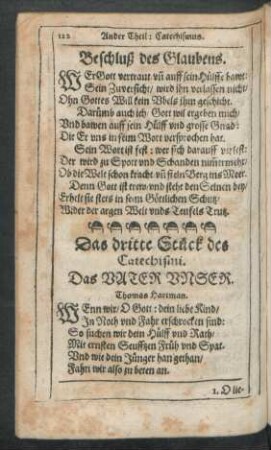 122 Ander Theil: Catechismus.
Beschluß des Glaubens.
WErGott vertraut vñ auff sein Hülffe bawt:
Sein Zuversicht/ wird ihn verlassen nicht/
Ohn Gottes Will kein Vbels ihm geschicht.
Darümb auch ich/ Gott wil ergeben mich/
Vnd bawen auff sein Hülff vnd grosse Gnad:
Die Er vns in seim Wort versprochen hat.
Sein Wort ist fest: wer sich darauff verlest:
Der wird zu Spott vnd Schanden nimermehr/
Ob die Welt schon kracht vñ fielen Berg ins Meer.
Denn Gott ist trew/ vnd steht den Seinen bey/
Erhelt sie stets in seim Göttlichen Schutz/
Wider der argen Welt vnds Teufels Trutz.
Das dritte Stück des
Catechismi.
Das VATER VNSER.
Thomas Hartman.
WEnn wir/ O Gott: dein liebe Kind/
In Noth vnd Fahr erschrocken sind:
So suchen wir dein Hülff vnd Rath/
Mit ernsten Seufftzen Früh vnd Spat.
Vnd wie dein Jünger han gethan/
Fahn wir also zu beten an.
1. O lie-